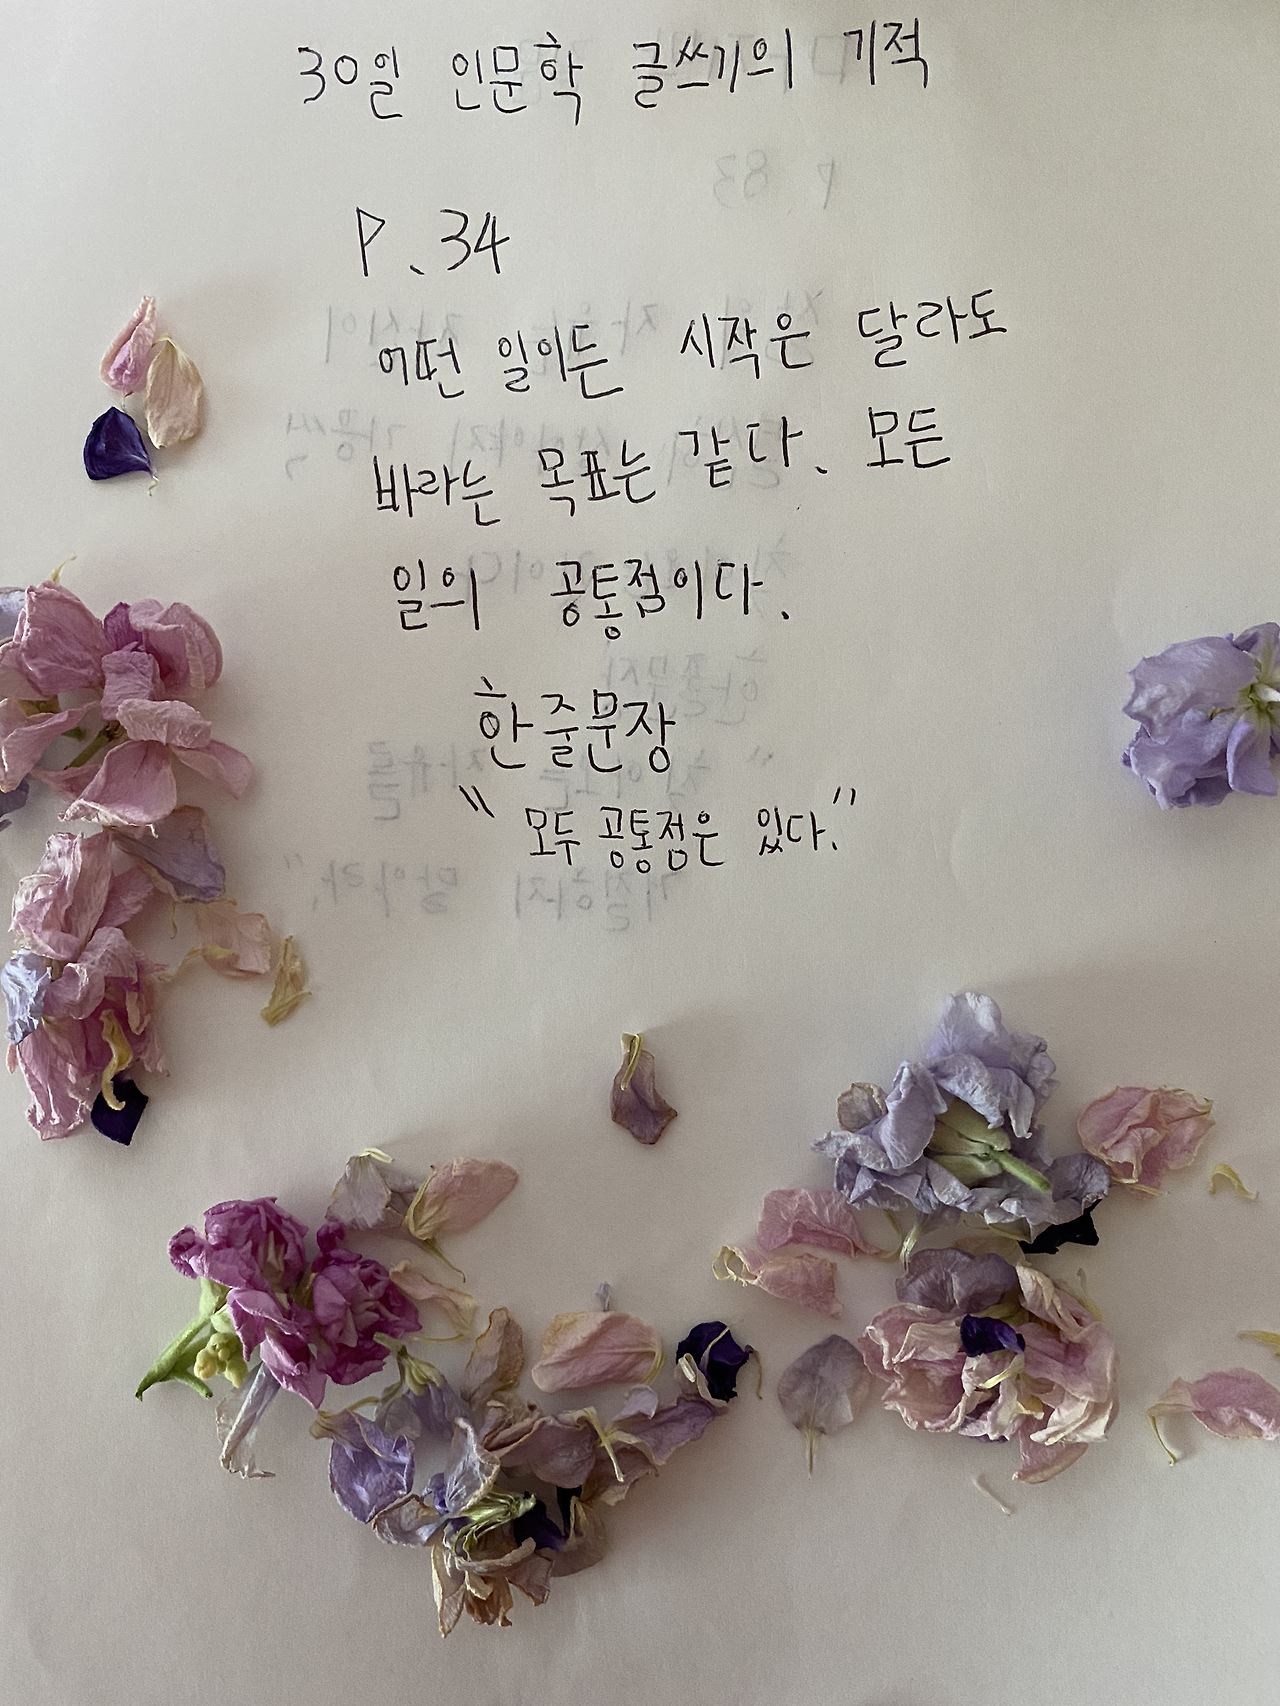 30일 인문학 글쓰기의 기적
P. 34
어떤 일이든 시작은 달라도
바라는 목표는 같다. 모든
일의 공통점이다.
한줄문장
" 모두 공통점은 있다."